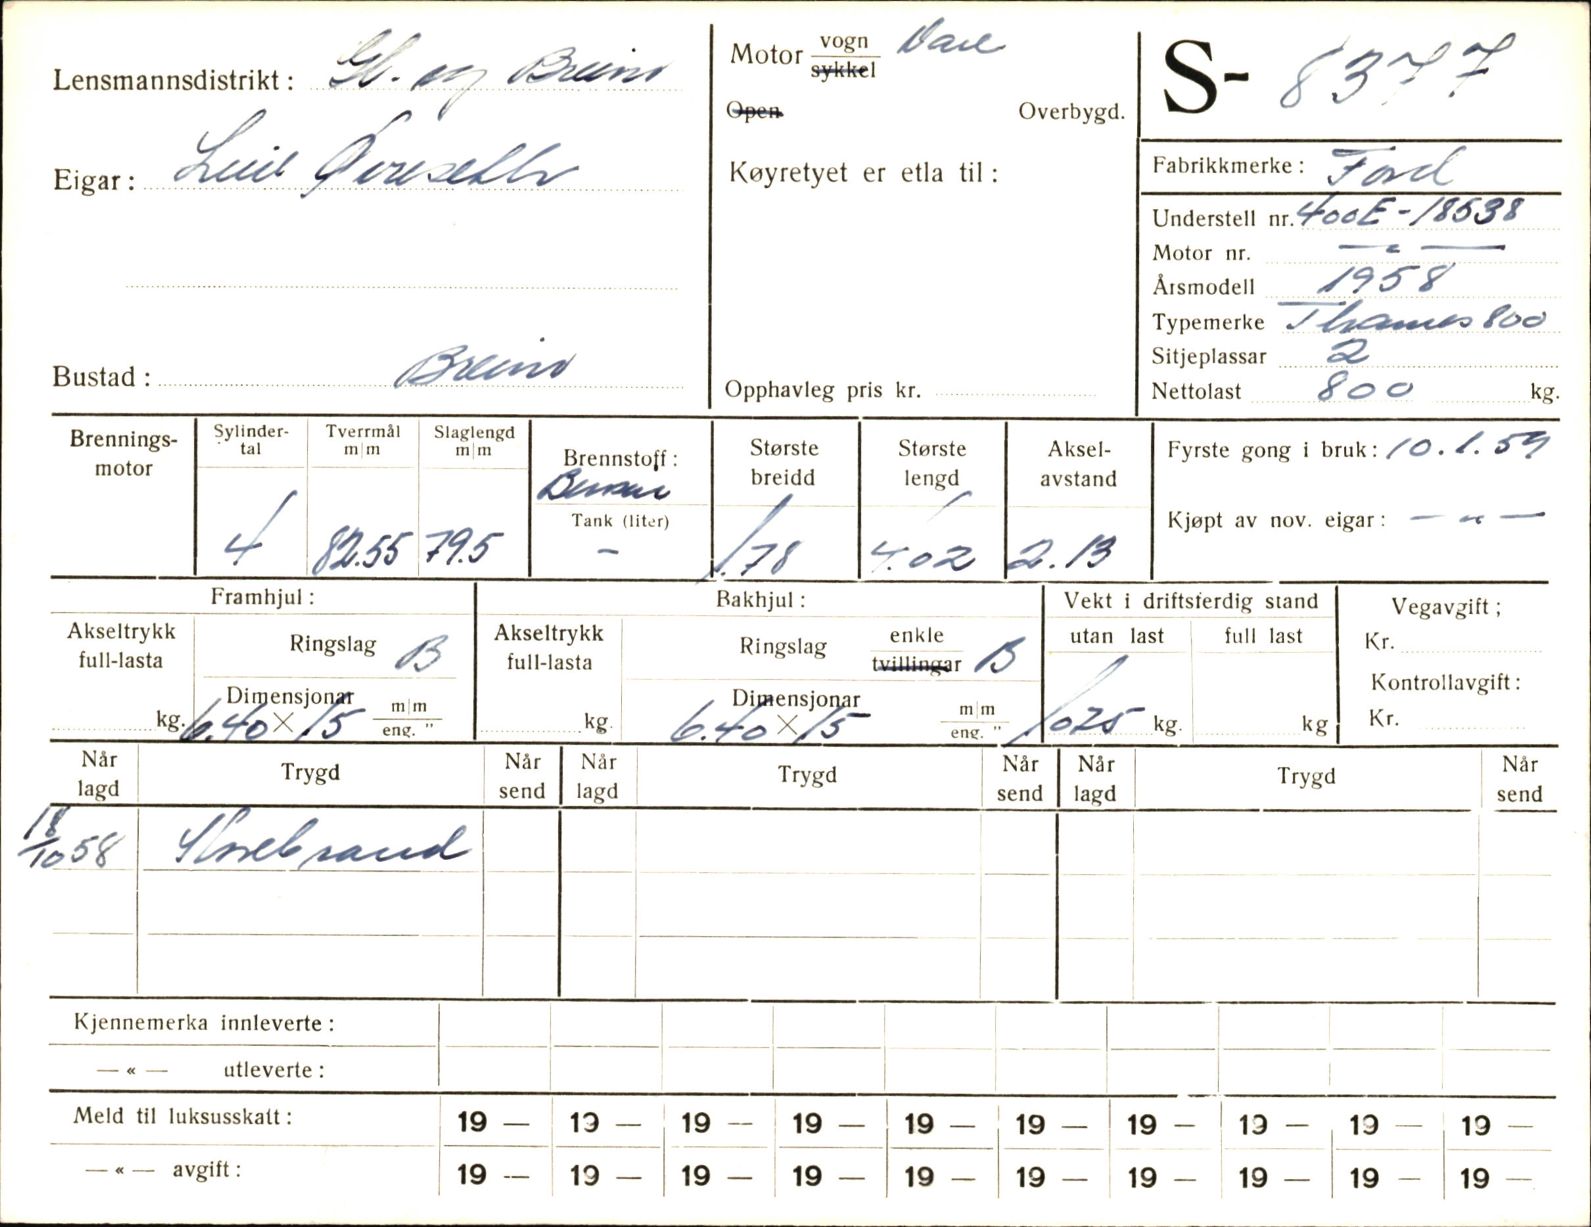 Lensmannsdistrikt: Gl. og Breim
Eigar: Leiv Øvreseth
Bustad: Breim
Motor vogn Vare
sykkel
Open Overbygd.
Køyretyet er etla til:
Opphavleg pris kr.
S- 8377
Fabrikkmerke: Ford
Understell nr. 400E-18538
Motor nr. — " —
Årsmodell 1958
Typemerke Thames 800
Sitjeplassar 2
Nettolast 800 kg.
Brennings-
motor
Sylinder-
tal
4
Tverrmål
m|m
82.55
Slaglengd
m|m
79.5
Brennstoff:
Bensin
Tank (liter)
-
Største
breidd
1.78
Største
lengd
4.02
Aksel-
avstand
2.13
Fyrste gong i bruk: 10.1.59
Kjøpt av nov. eigar: — " —
Framhjul:
Akseltrykk
full-lasta
kg.
Ringslag B
Dimensjonar
6.40 × 15 m|m
eng. "
Bakhjul:
Akseltrykk
full-lasta
kg.
Ringslag enkle
tvillingar B
Dimensjonar
6.40 × 15 m|m
eng. "
Vekt i driftsferdig stand
utan last full last
1025 kg. kg
Vegavgift;
Kr.
Kontrollavgift:
Kr.
Når
lagd Trygd Når
send Når
lagd Trygd Når
send Når
lagd Trygd Når
send
18/10 58 Storebrand
Kjennemerka innleverte:
— « — utleverte:
Meld til luksusskatt: 19 — 19 — 19 — 19 — 19 — 19 — 19 — 19 — 19 — 19 —
— « — avgift: 19 — 19 — 19 — 19 — 19 — 19 — 19 — 19 — 19 — 19 —